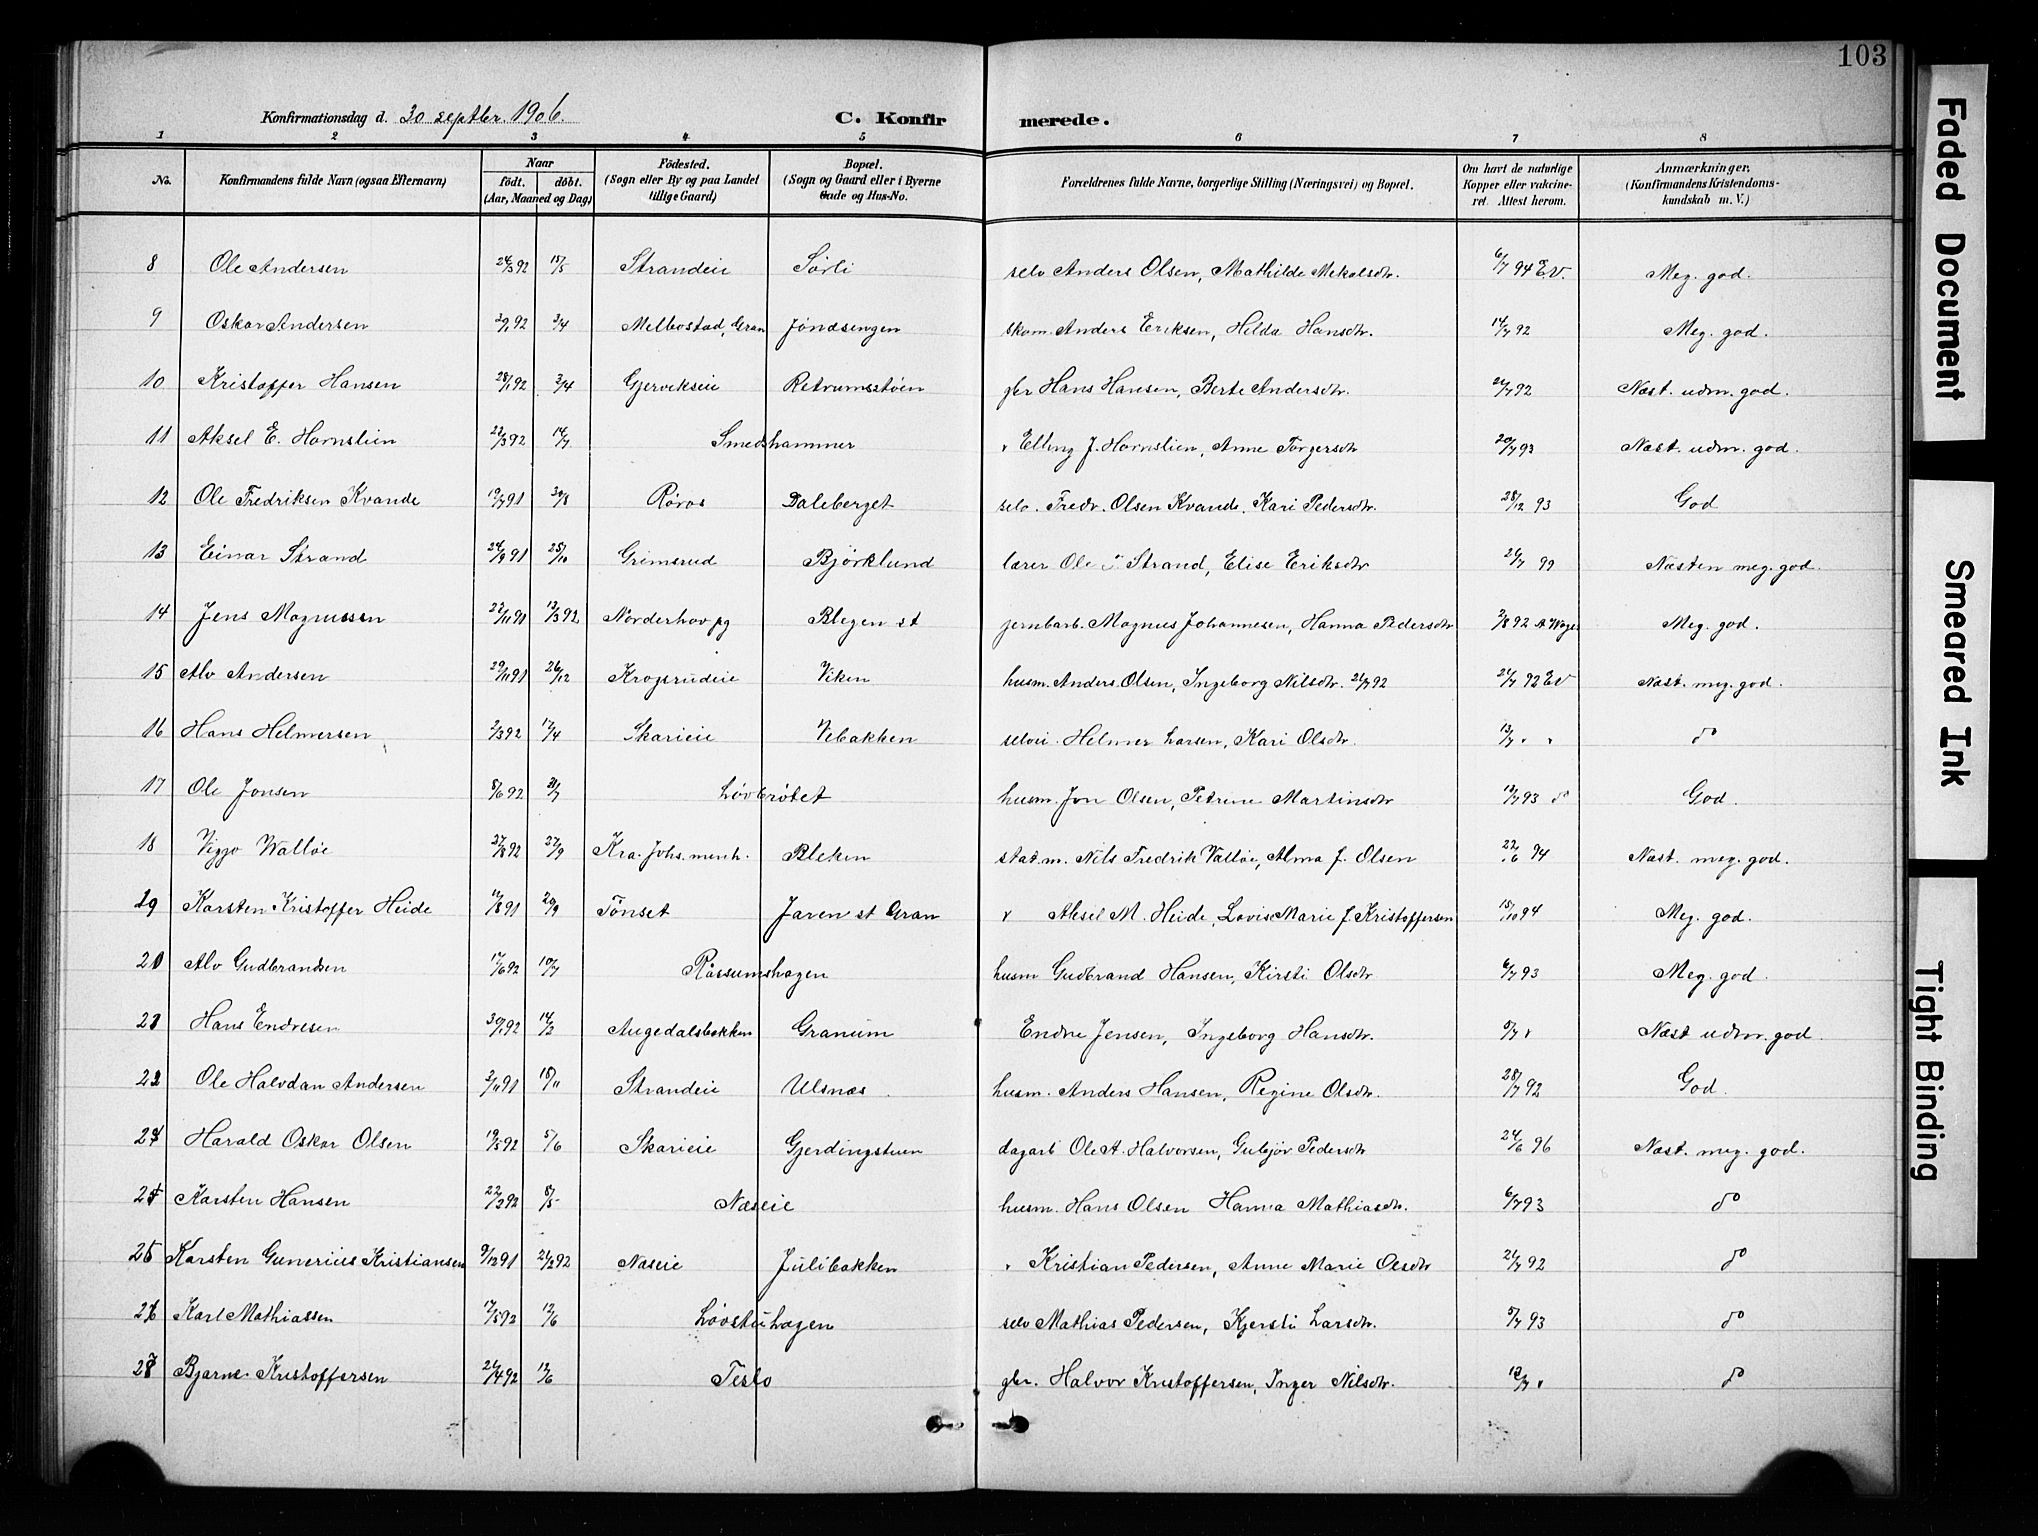 103
Konfirmationsdag d. 30 septbr. 1906. C. Konfirmerede.
1 2 3 4 5 6 7 8
No. Konfirmandens fulde Navn (ogsaa Efternavn) Naar født. døbt. (Aar, Maaned og Dag) Fødested. (Sogn eller By og paa Landet tillige Gaard) Bopæl. (Sogn og Gaard eller i Byerne Gade og Hus-No. Forældrenes fulde Navne, borgerlige Stilling (Næringsvei) og Bopæl. Om havt de naturlige Kopper eller vakcineret. Attest herom. Anmærkninger. (Konfirmandens Kristendomskundskab m. V.)
8 Ole Andersen 24/3 92 15/5 Strandeie Sørli selv Anders Olsen, Mathilde Mekalsdtr. 6/7 94 E.V. Meg. god.
9 Oskar Andersen 92 3/4 Melbostad, Gran Jøndsengen skom. Anders Eriksen, Hilda Hansdtr. 14/7 92 Meg. god.
10 Kristoffer Hansen 28/1 92 3/4 Gjerveikseie Retrumstøen gbr Hans Hansen, Berte Andersdtr. 92 Næst. udm. god.
11 Aksel E. Hornslien 23/3 92 14/7 Smedshammer " Elling J. Hornslien, Anne Torgersdtr 20/7 93 Næst. udm. god.
12 Ole Fredriksen Kvande 19/7 91 30/8 Røros Daleberget selv. Fredr. Olsen Kvande, Kari Pedersdtr. 28/12 93 God
13 Einar Strand 24/9 91 25/10 Grimsrud Bjørklund lærer Ole Strand, Elise Eriksdtr 99 Næsten meg. god.
14 Jens Magnussen 22/11 91 13/3 92 Norderhov pg Blegen st jernbarb. Magnus Johannesen, Hanna Pedersdtr 2/8 92 Meg. god.
15 Alv Andersen 29/11 91 26/12 Krogsrudeie Viken husm. Anders Olsen, Ingeborg Nilsdtr. 21/7 92 21/7 92 EV Næst. meg. god.
16 Hans Helmersen 2/3 92 17/4 Skarieie Vebakken selvei. Helmer Larsen, Kari Olsdtr. 13/7 " " do
17 Ole Jonsen 8/6 92 31/7 Løvbrøtet husm. Jon Olsen, Petrine Martinsdtr 19/7 93 do God.
18 Viggo Walløe 27/8 92 27/9 Kra. Johs. menh. Bleken stat.m. Nils Fredrik Valløe, Alma f. Olsen 22/6 94 Næst. meg. god.
19 Karsten Kristoffer Heide 17/8 91 20/9 Tønset Jaren st Gran " Aksel M. Heide, Lovise Marie f. Kristoffersen 15/10 94 Meg. god.
20 Alv Gudbrandsen 17/6 92 10/7 Råssumshagen husm Gudbrand Hansen, Kirsti Olsdtr 6/7 93 Meg. god.
21 Hans Endresen 30/1 92 14/3 Augedalsbakken Granum Endre Jensen, Ingeborg Hansdtr. 5/7 " Næst udm. god.
22 Ole Halvdan Andersen 2/11 91 15/11 Strandeie Ulsnæs husm. Anders Hansen, Regine Olsdtr. 28/7 92 God.
Harald Oskar Olsen 19/5 92 5/6 Skarieie Gjerdingstuen dagarb Ole A. Halvorsen, Gubjør Pedersdtr 24/6 96 Næst. meg. god.
Karsten Hansen 22/3 92 8/5 Næseie husm. Hans Olsen Hanna Mathiasdtr. 6/7 93 do
Karsten Gunerius Kristiansen 9/12 91 21/2 92 Næseie Julibakken " Kristian Pedersen, Anne Marie Olsdtr 21/7 92 do
Karl Mathiassen 17/5 92 12/6 Løvstuhagen selv Mathias Pedersen, Kjersti Larsdtr. 5/7 93 do
Bjarne Kristoffersen 21/4 92 12/6 Teslo gbr. Halvor Kristoffersen, Inger Nilsdtr. 12/7 " do
Faded Document
Smeared Ink
Tight Binding